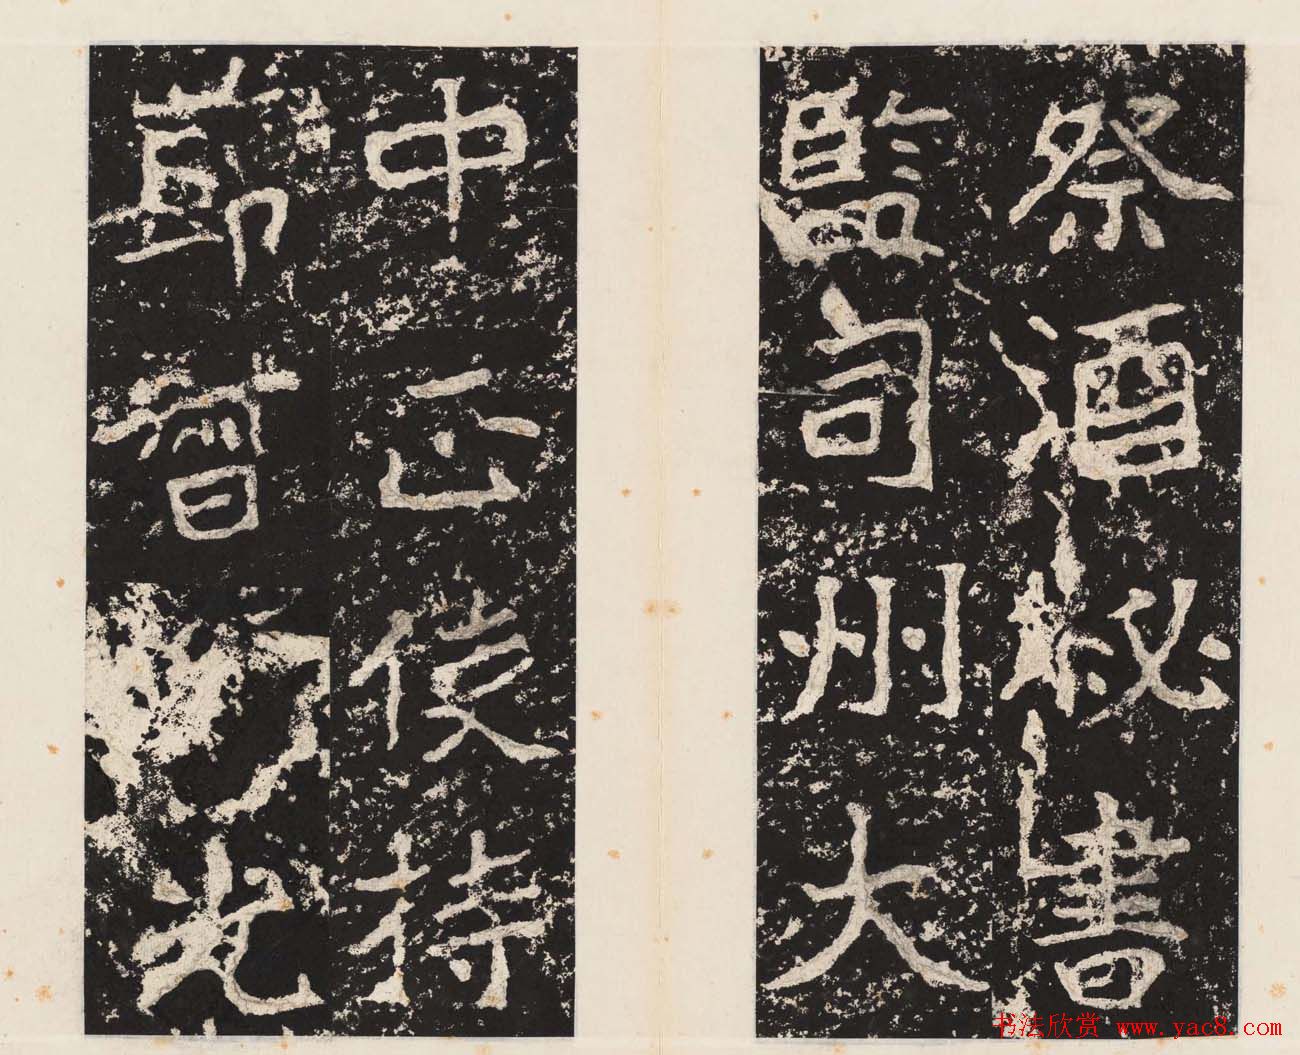 祭酒秘書
監司州大
中正使持
節督
光
书法欣赏 www.yac8.com